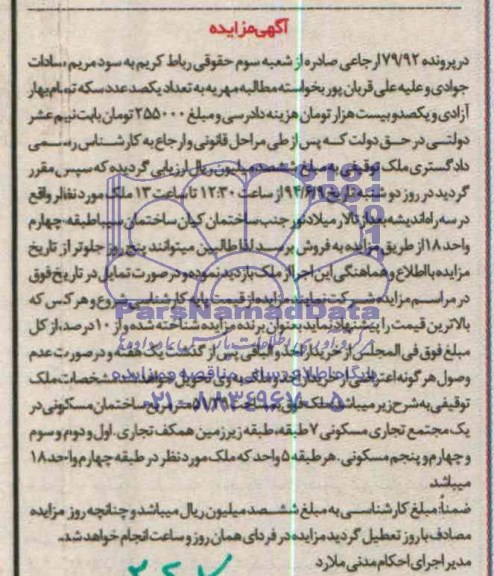 آگهی مزایده
در پرونده ۷۹/۹۲ ارجاعی صادره از شعبه سوم حقوقی رباط کریم به سود مریم سادات
جوادی و علیه علی قربان پور بخواسته مطالبه مهریه به تعداد یکصد عدد سکه تمام بهار
آزادی و یکصد و بیست هزار تومان هزینه دادرسی و مبلغ ۲۵۵۰۰۰ تومان بابت نیم عشر
دولتی در حق دولت که پس از طی مراحل قانونی و ارجاع به کارشناس رسمی
دادگستری ملک توقیفی به مبلغ ششصد میلیون ریال ارزیابی گردیده که سپس مقرر
گردید در روز دو شنبه تاریخ ۹۴/۶/۹ از ساعت ۱۲:۳۰ تا ساعت ۱۳ ملک مورد نظر واقع
در سه راه اندیشه بعد از تالار میلاد نور جنب ساختمان کیان ساختمان سیب طبقه چهارم
واحد ۱۸ از طریق مزایده به فروش برسد لذا طالبین میتوانند پنج روز جلوتر از تاریخ
مزایده با اطلاع و هماهنگی این اجرا از ملک بازدید نموده و در صورت تمایل در تاریخ فوق
در مراسم مزایده شرکت نمایند مزایده از قیمت پایه کارشناسی شروع و هر کس که
بالاترین قیمت را پیشنهاد نماید بعنوان برنده مزایده شناخته شده و از ۱۰ درصد از کل
مبلغ فوق فی المجلس از خریدار اخذ و الباقی پس از گذشت یک هفته و در صورت عدم
وصول هر گونه اعتراضی از خریدار اخذ و ملک به وی تحویل خواهد شد مشخصات ملک
توقیفی به شرح زیر میباشد ملک فوق به مساحت متر مربع ساختمان مسکونی در
یک مجتمع تجاری مسکونی ۷ طبقه، طبقه زیرزمین همکف تجاری، اول و دوم و سوم
و چهارم و پنجم مسکونی. هر طبقه ۵ واحد که ملک مورد نظر در طبقه چهارم واحد ۱۸
میباشد
ضمناً: مبلغ کارشناسی به مبلغ ششصد میلیون ریال میباشد و چنانچه روز مزایده
مصادف با روز تعطیل گردید مزایده در فردای همان روز و ساعت انجام خواهد شد.
مدیر اجرای احکام مدنی ملارد
ParsNamadData
پایگاه اطلاع رسانی مناقصه و مزایده
۰۲۱-۸۸۳۴۹۶۷۰-۵